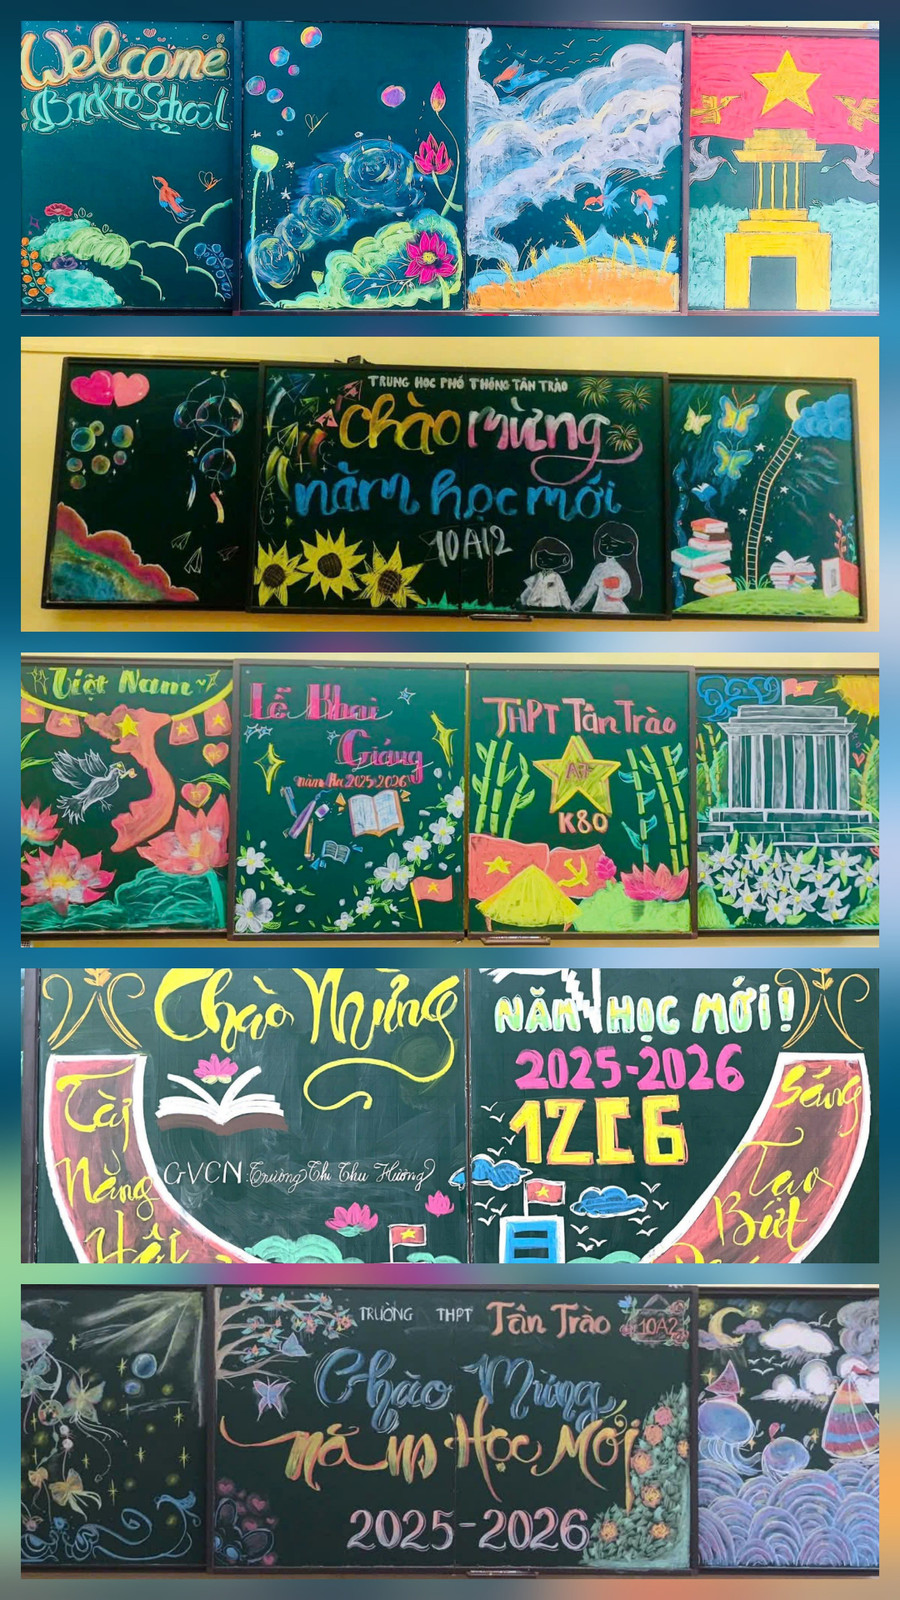 Welcome
Back to School
TRUNG HỌC PHỔ THÔNG TÂN TRÀO
Chào mừng
năm học mới
10A12
Việt Nam
Lễ Khai
Giảng
năm học 2025-2026
THPT Tân Trào
K80
Chào Mừng
Tài
Năng
Hội
GVCN: Trương Thị Thu Hường
NĂM HỌC MỚI!
2025-2026
12C6
Sáng
Tạo
Bứt
TRƯỜNG THPT Tân Trào
10A2
Chào Mừng
năm Học Mới
2025-2026